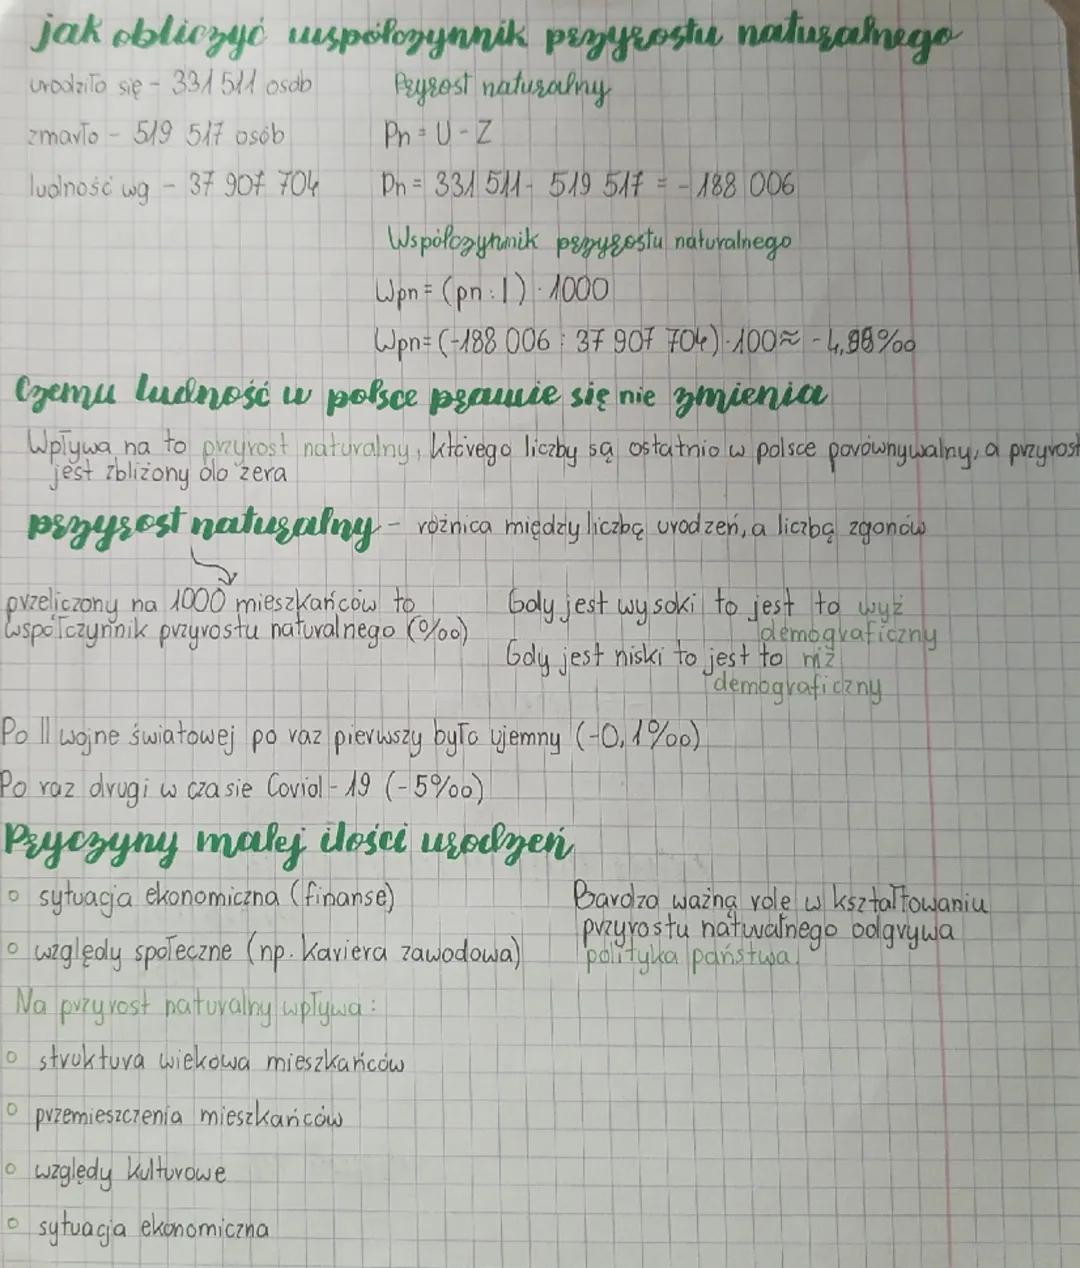 jak obliczyć współczynnik przyrostu naturalnego
urodziło się - 331 511 osób
zmarło - 519 517 osób
ludność wg - 37 907 704
Przyrost naturalny
Pn = U - Z
Pn = 331 511 - 519 517 = - 188 006
Współczynnik przyrostu naturalnego
Wpn = (pn : l) · 1000
Wpn = (-188 006 : 37 907 704) · 100 ≈ - 4,98‰
Czemu ludność w polsce prawie się nie zmienia
Wpływa na to przyrost naturalny, którego liczby są ostatnio w polsce porównywalny, a przyrost
jest zbliżony do zera
przyrost naturalny - różnica między liczbą urodzeń, a liczbą zgonów
przeliczony na 1000 mieszkańców to
współczynnik przyrostu naturalnego (‰)
Gdy jest wysoki to jest to wyż
demograficzny
Gdy jest niski to jest to niż
demograficzny
Po II wojne światowej po raz pierwszy było ujemny (-0,1‰)
Po raz drugi w czasie Covid - 19 (-5‰)
Pryczyny małej ilości urodzeń
o sytuacja ekonomiczna (finanse)
o względy społeczne (np. kariera zawodowa)
Bardzo ważną role w kształtowaniu
przyrostu naturalnego odgrywa
polityka państwa.
Na przyrost naturalny wpływa:
o struktura wiekowa mieszkańców
o przemieszczenia mieszkańców
o względy kulturowe
o sytuacja ekonomiczna